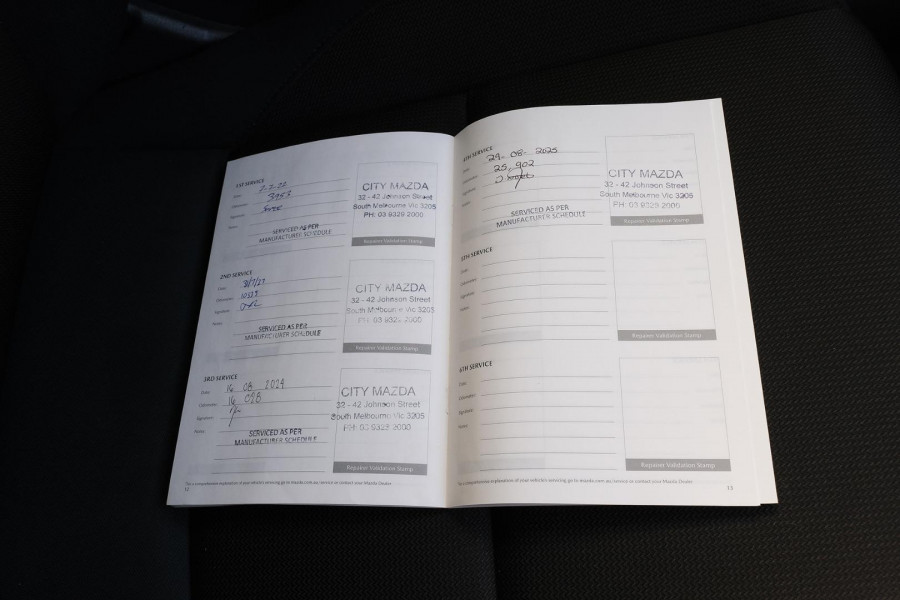 1ST SERVICE
Date:
Odometer: 3953
Signature:
Notes:
SERVICED AS PER
MANUFACTURER SCHEDULE
CITY MAZDA
32 - 42 Johnson Street
South Melbourne Vic 3205
PH: 03 9329 2000
Repairer Validation Stamp
2ND SERVICE
Date:
Odometer: 10523
Signature:
Notes:
SERVICED AS PER
MANUFACTURER SCHEDULE
CITY MAZDA
32 - 42 Johnson Street
South Melbourne Vic 3205
PH: 03 9329 2000
Repairer Validation Stamp
3RD SERVICE
Date: 16 08 2024
Odometer: 16 028
Signature:
Notes:
SERVICED AS PER
MANUFACTURER SCHEDULE
CITY MAZDA
32 - 42 Johnson Street
South Melbourne Vic 3205
PH: 03 9329 2000
Repairer Validation Stamp
For a comprehensive explanation of your vehicles servicing go to mazda.com.au/service or contact your Mazda Dealer.
12
4TH SERVICE
Date: 29-08-2025
Odometer: 25,902
Signature:
Notes:
SERVICED AS PER
MANUFACTURER SCHEDULE
CITY MAZDA
32 - 42 Johnson Street
South Melbourne Vic 3205
PH: 03 9329 2000
Repairer Validation Stamp
5TH SERVICE
Date:
Odometer:
Signature:
Notes:
Repairer Validation Stamp
6TH SERVICE
Date:
Odometer:
Signature:
Notes:
Repairer Validation Stamp
For a comprehensive explanation of your vehicles servicing go to mazda.com.au/service or contact your Mazda Dealer.
13